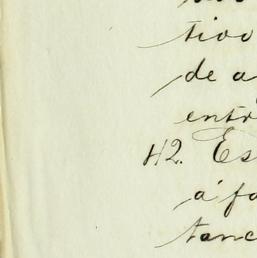 tivo
de a
entr
42. Es
á fa
tanc